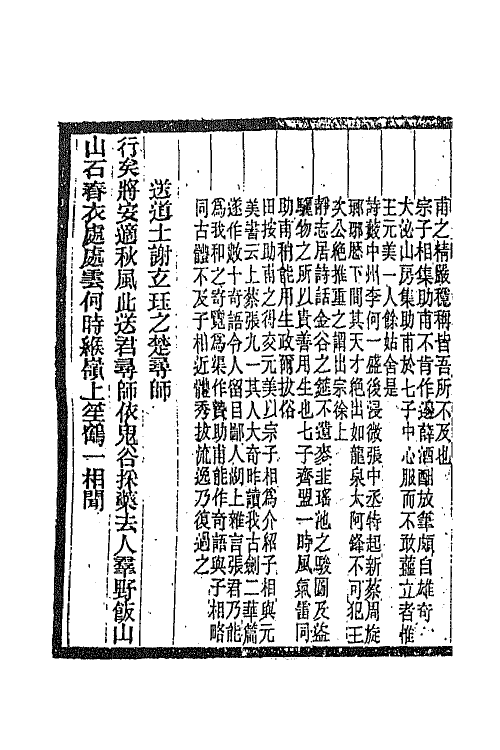 甫之精嚴穩稱皆吾所不及也
宗子相集助甫不肯作邊薛酒酣放筆頗自雄奇
大泌山房集助甫於七子中心服而不敢蘊立者惟
王元美一人餘姑舍是
詩藪中州李何一盛後浸微張中丞特起新蔡周旋
瑯琊歷下間其天才絶出如龍泉太阿鋒不可犯王
次公絶推重之謂出宗徐上
靜志居詩話金谷之筵不遺麥韭瑤池之駿圖及盜
驪物之所以貴善用生也七子齊盟一時風氣雷同
助甫稍能用生政爾拔俗
田按助甫之得交元美以宗子相爲介紹子相與元
美書云上蔡張九一其人大奇昨讀我古劍二華篇
遂作數十奇語令人留目鄙人湖上雜言張君乃能
爲我和之奇覽爲渠作贊助甫能作奇語與子相略
同古體不及子相近體秀拔流逸乃復過之
送道士謝玄珏之楚尋師
行矣將安適秋風此送君尋師依鬼谷採藥去人羣野飯山
山石春衣處處雲何時緱嶺上笙鶴一相聞